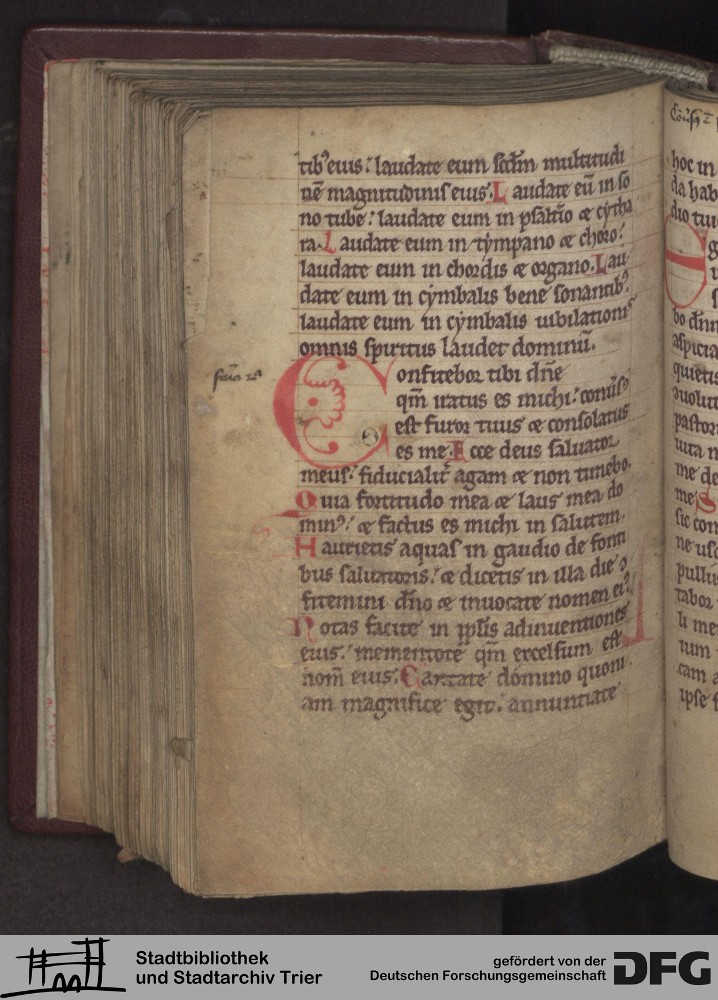 tib᷒ eius: laudate eum scdm multitudi
nē magnitudinis eius. Laudate eū in so
no tube: laudate eum in psaltio & cytha
ra. Laudate eum in tympano & choro:
laudate eum in chordis & organo. Lau
date eum in cymbalis bene sonantib᷒:
laudate eum in cymbalis iubilationis
omnis spiritus laudet dominū.
Confitebor tibi dñe
qm̄ iratus es michi: conuſ᷒
est furor tuus & consolatus
es me. Ecce deus saluator
meus: fiducialit̄ agam & non timebo.
Quia fortitudo mea & laus mea do
min᷒: & factus es michi in salutem.
Haurietis aquas in gaudio de fonti
bus saluatoris: & dicetis in illa die ꝯ
fitemini dño & inuocate nomen ei᷒
Notas facite in pplis adinuentiones
eius: mementote qm̄ excelsum est
nom̄ eius. Cantate domino quoni
am magnifice egit: annuntiate
hoc in
da hab
dio tui
bo dñm
aspicia
quietis
pastor
uita m
me de
me S
sic con
ne usq
pullu
tabor
li me
tum
cam a
ipse s
Stadtbibliothek
und Stadtarchiv Trier
gefördert von der
Deutschen Forschungsgemeinschaft
DFG